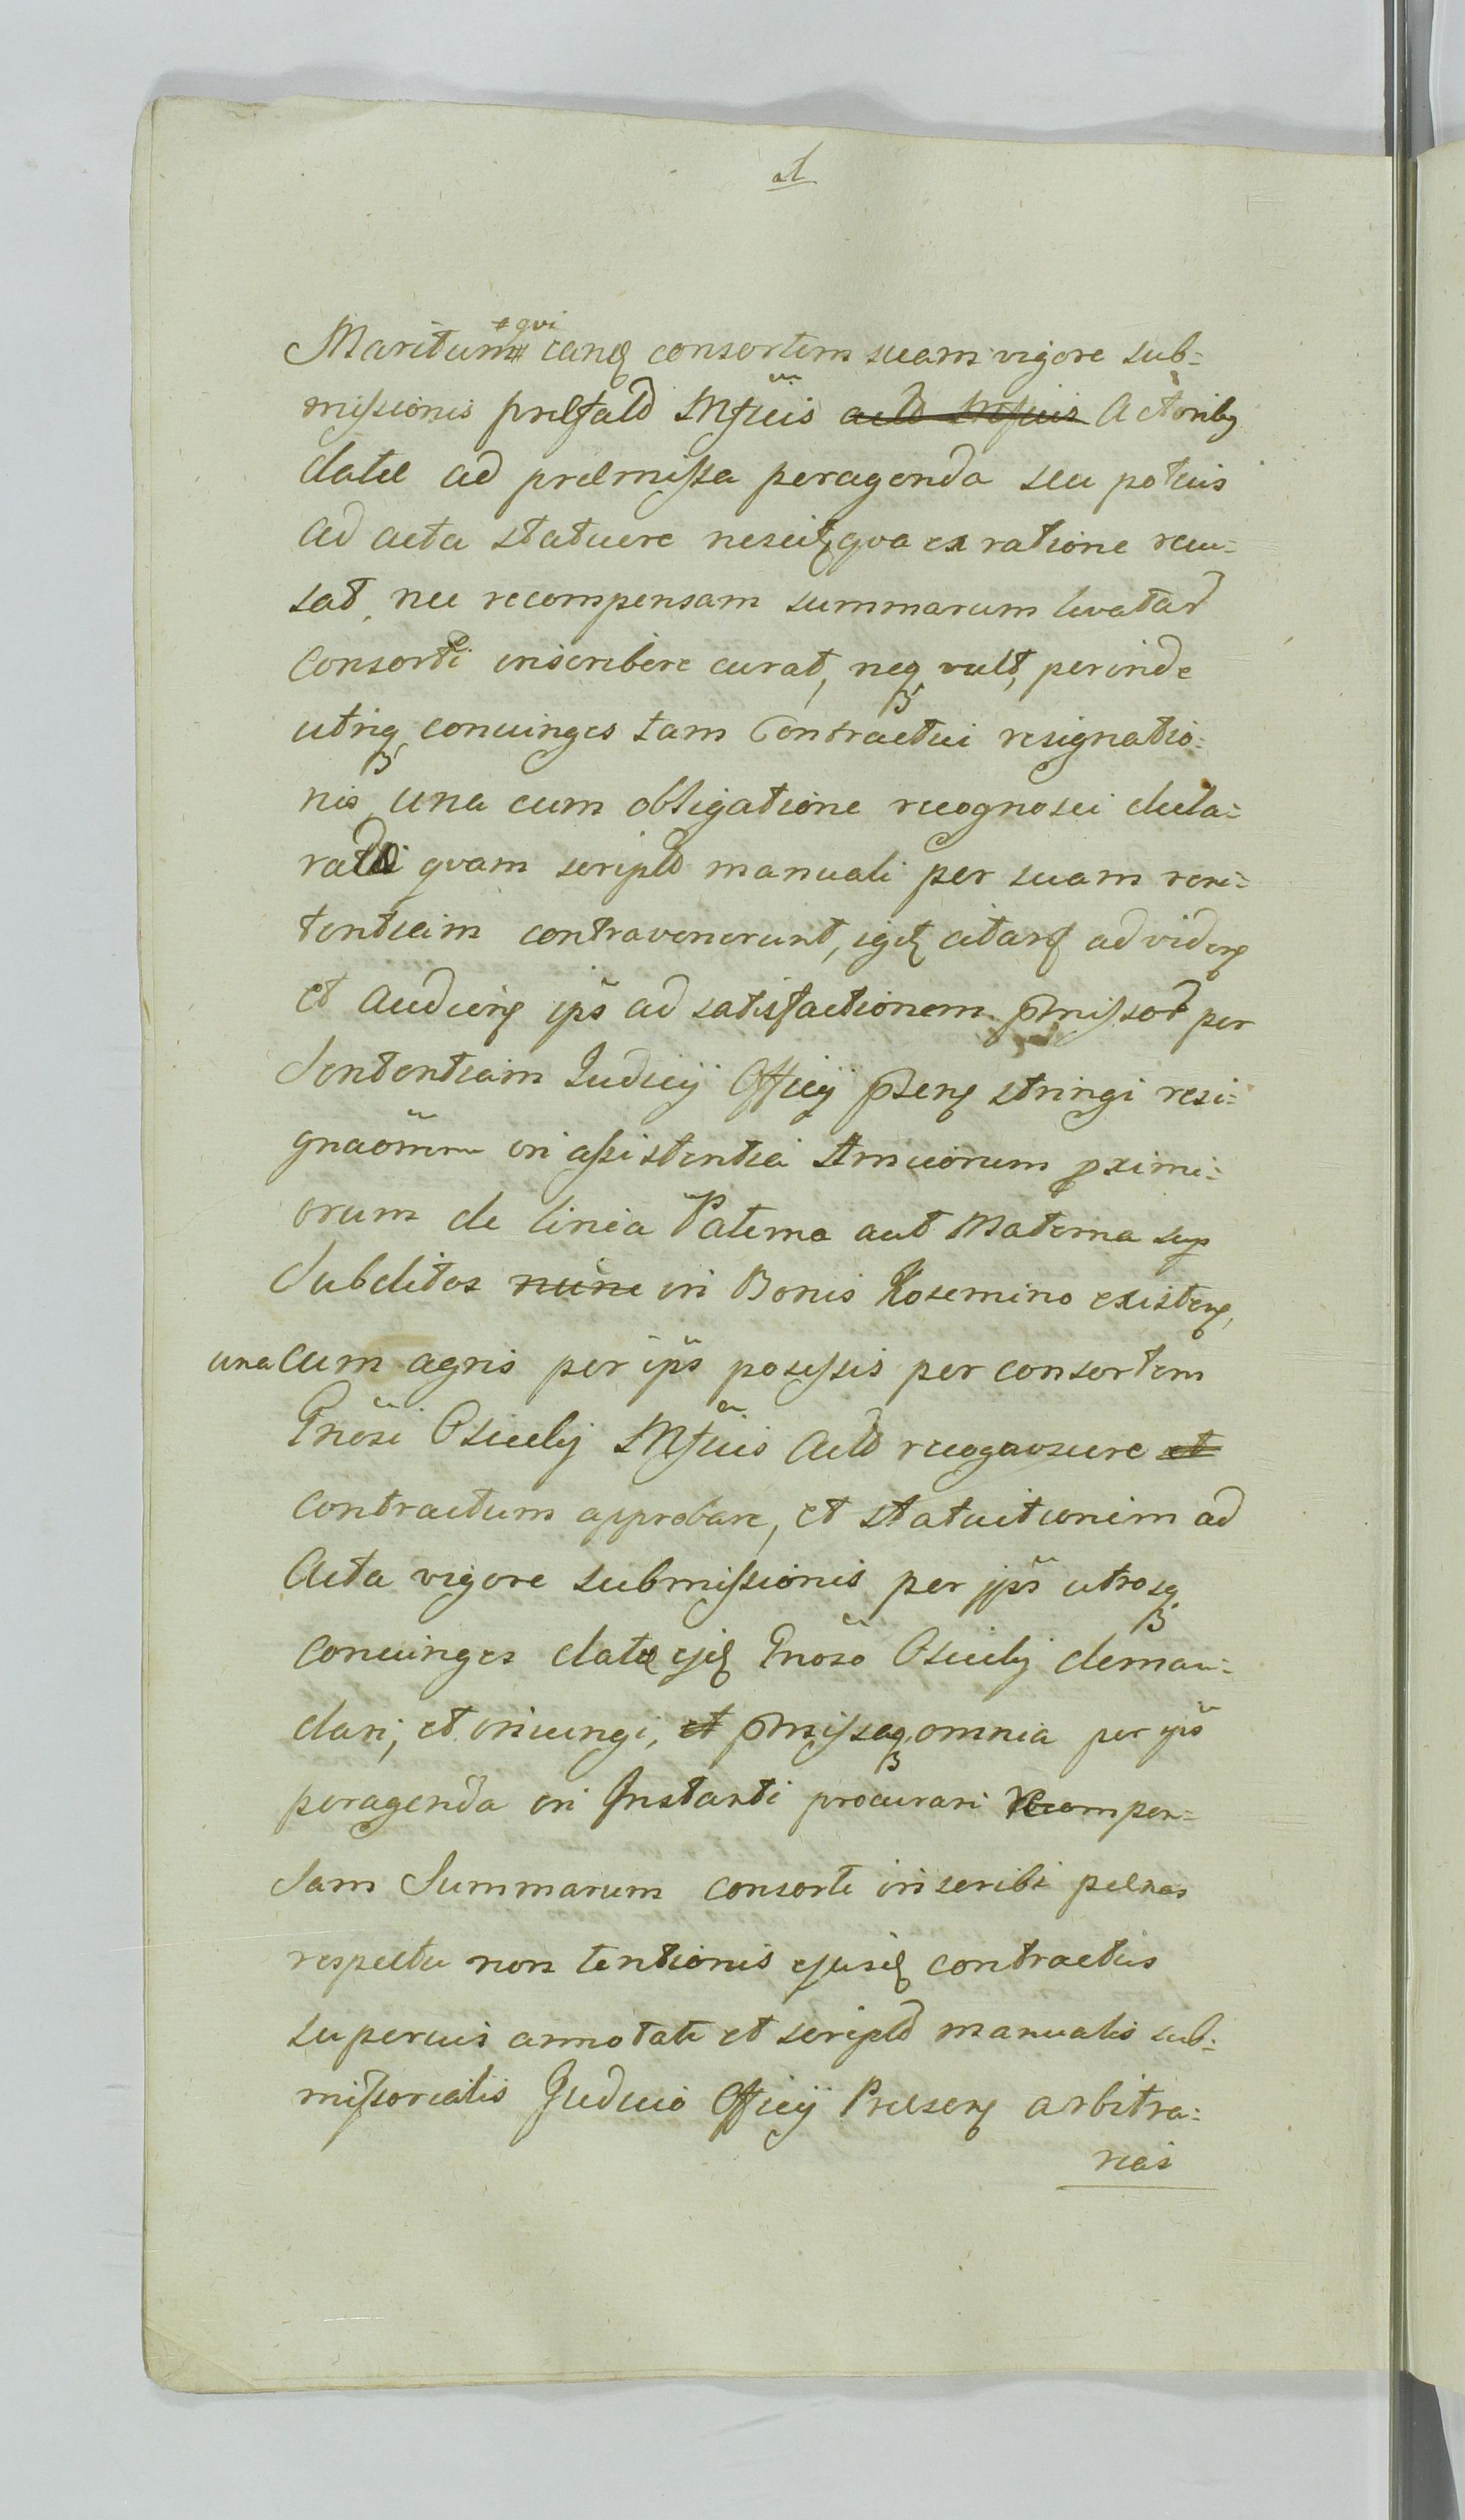 Maritum # qui eand consortem suam vigore sub=
missionis præfatõ Mfcis actõ Mfcis Actoribꝫ
datæ ad præmissa peragenda seu potius
ad acta statuere nescitꝫ qva ex ratione recu=
sat, nec recompensam summarum levatarꝫ
Consorti inscribere curat, neqꝫ vult, perinde
utriqꝫ coniunges tam Contractui resignatio=
nis una cum obligatione recognosci decla=
ratõ qvam scriptõ manuali per suam reni=
tentiam contravenerunt, igtꝫ citanꝫ ad videnꝫ
et audienꝫ ips̃ ad satisfactionem p̃missorꝫ per
Sententiam Iudicij Officij p̃senꝫ stringi resi=
gnaom̃em in assistentia Amicorum proximi=
orum de linea Paterna aut Materna sup
Subditos nunc in Bonis Kosemino existenꝫ,
una cum agris per ips̃ possessis per consortem
Gnosi Osiecky Mfcis Actõ recognoscere et
contractum approbare, et statuitionem ad
Acta vigore submissionis per jps̃ utrosqꝫ
coniunges datæ ejdꝫ Gnoso Osiecky deman=
dari, et iniungi, et p̃missaqꝫ omnia per ips̃
peragenda in Instanti procurari recompen=
sam Summarum consorti inscribi pœnas
respectu non tentionis ejusdꝫ contractus
superius annotati et scriptõ manualis sub=
missorialis Judicio Officij Præsenꝫ arbitra=
rias